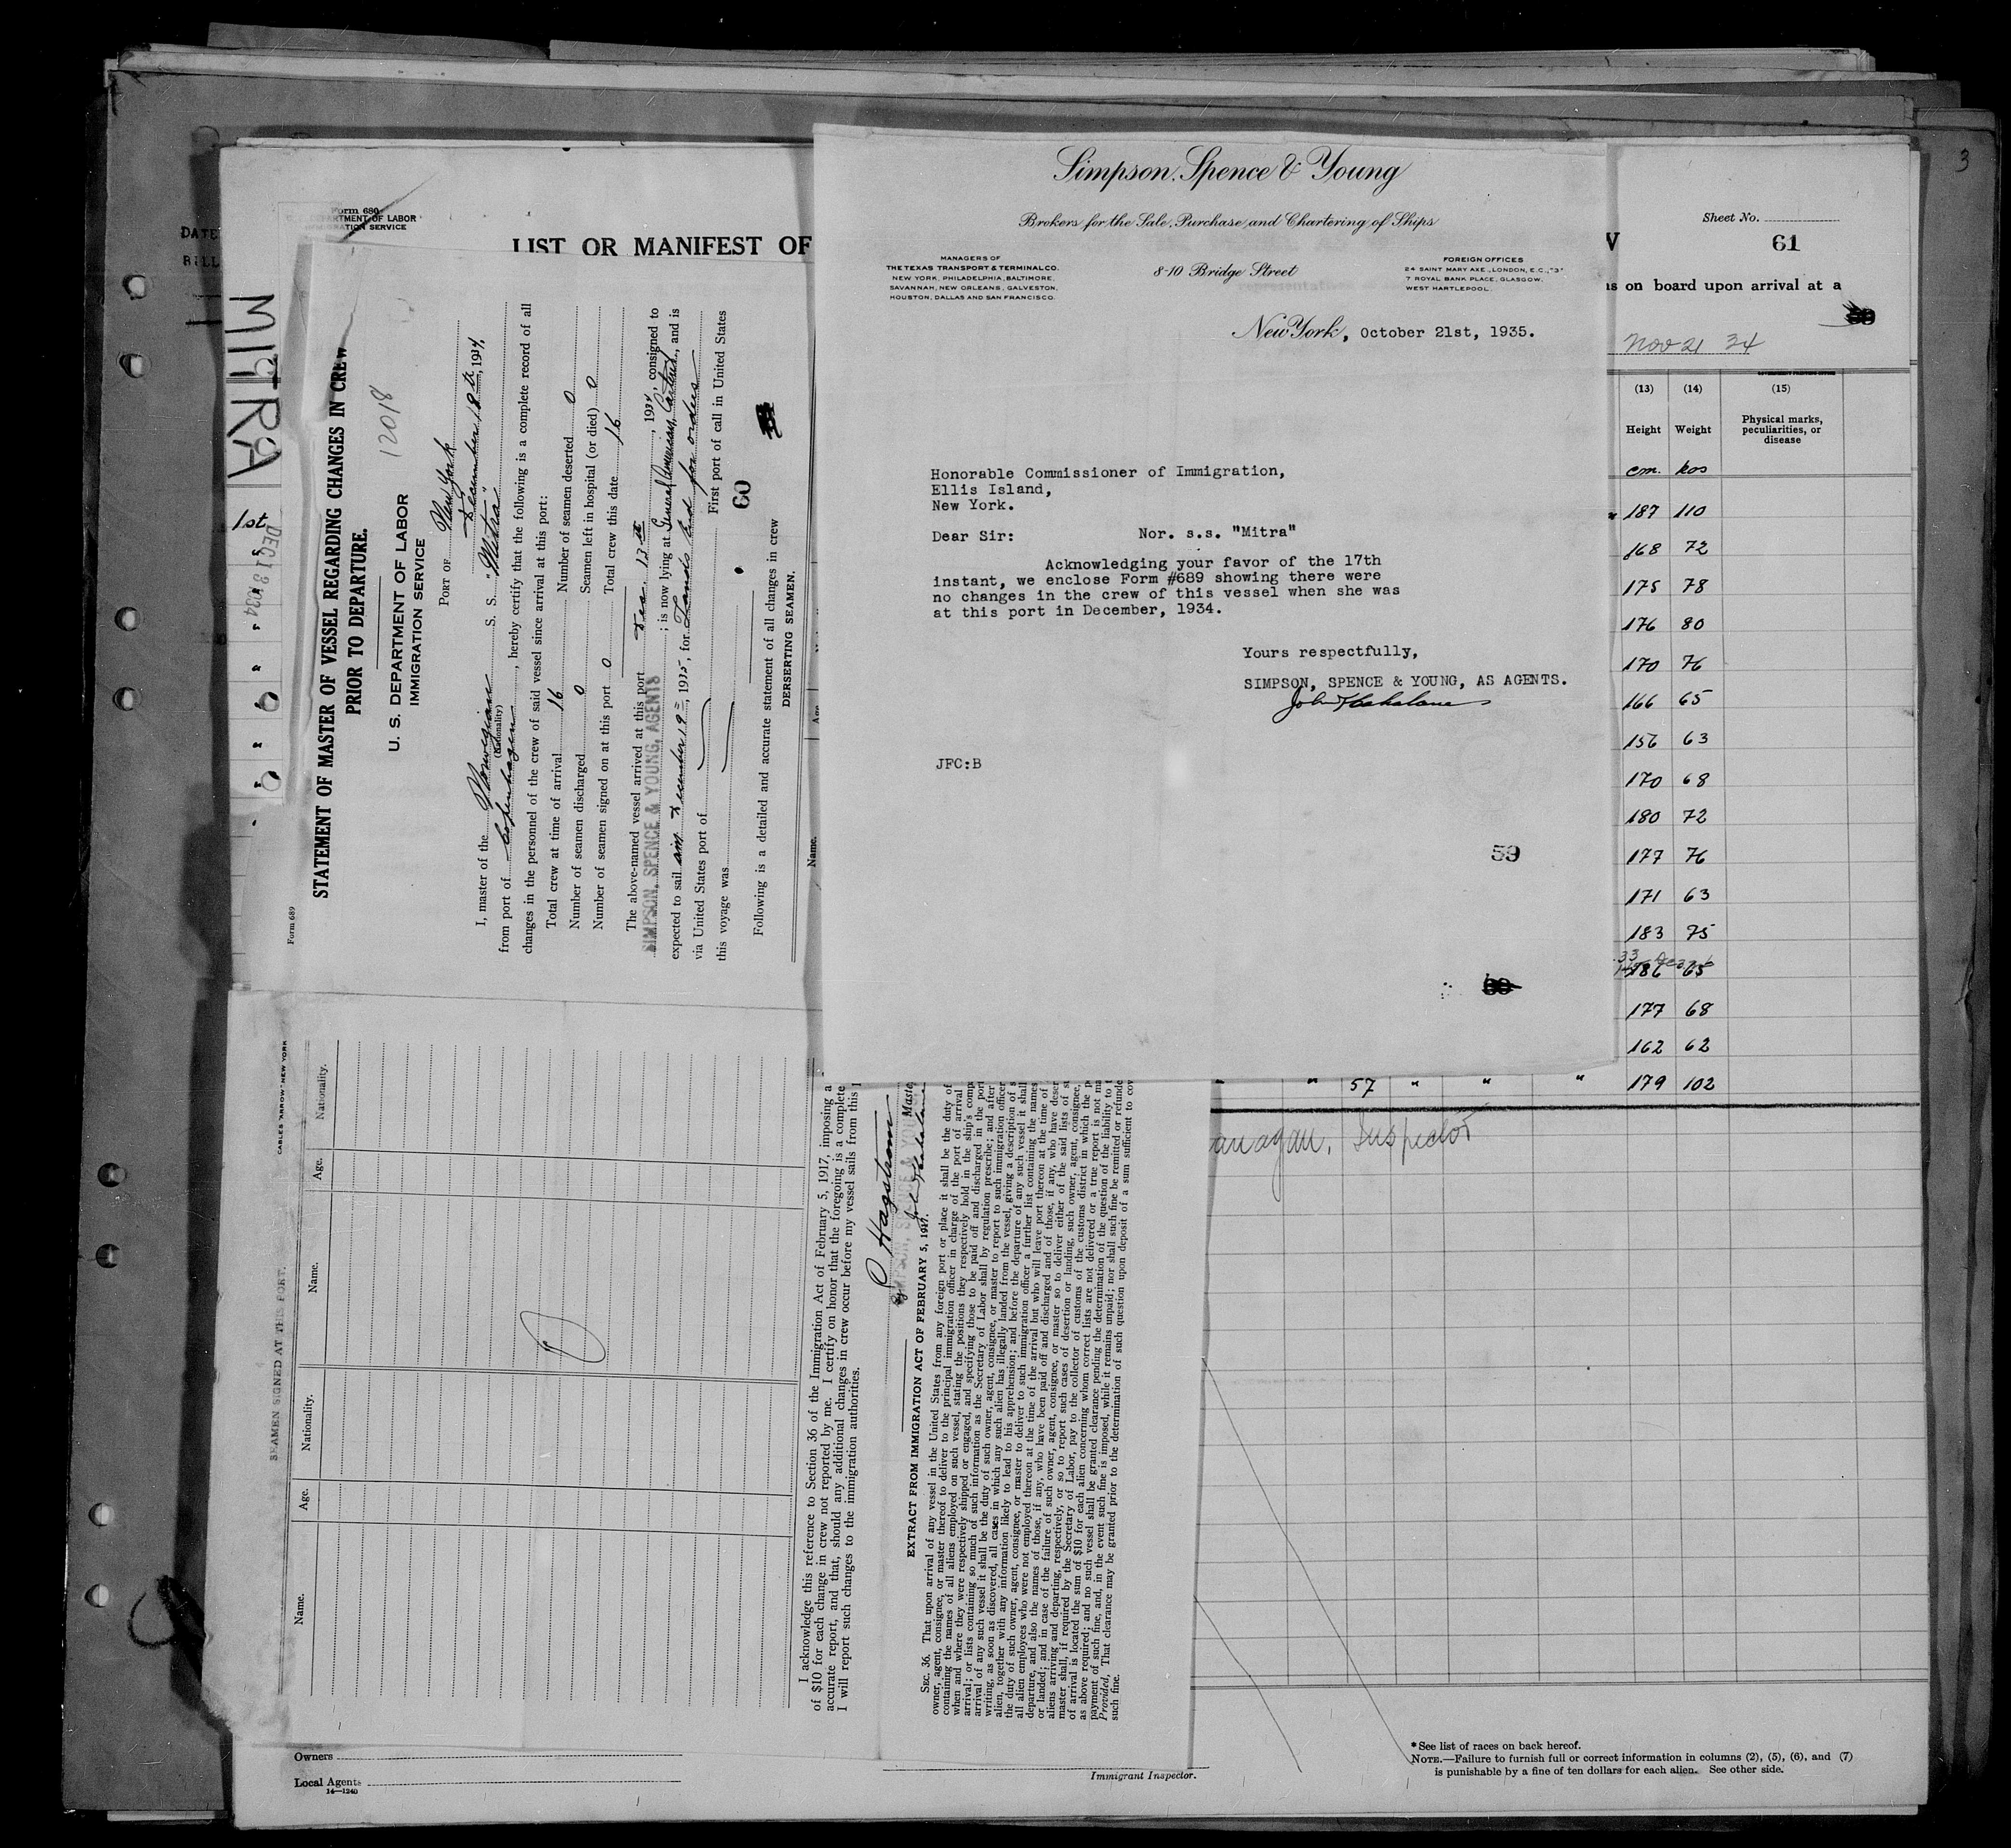 3
DATE
BILL
MITRA
1st
DEC 13 1934
Form 680
DEPARTMENT OF LABOR
IMMIGRATION SERVICE
LIST OR MANIFEST OF
Sheet No.
61
ns on board upon arrival at a
Nov 21 34
(13) (14) (15)
Height Weight Physical marks,
peculiarities, or
disease
cm. kos
187 110
168 72
175 78
176 80
170 76
166 65
156 63
170 68
180 72
177 76
171 63
183 75
186 65
177 68
162 62
" " 57 " " " 179 102
anagan, Inspector
Simpson, Spence & Young
Brokers for the Sale, Purchase and Chartering of Ships
MANAGERS OF
THE TEXAS TRANSPORT & TERMINAL CO.
NEW YORK, PHILADELPHIA, BALTIMORE,
SAVANNAH, NEW ORLEANS, GALVESTON,
HOUSTON, DALLAS AND SAN FRANCISCO.
8-10 Bridge Street
FOREIGN OFFICES
24 SAINT MARY AXE, LONDON, E.C., "3"
7 ROYAL BANK PLACE, GLASGOW,
WEST HARTLEPOOL.
New York, October 21st, 1935.
Honorable Commissioner of Immigration,
Ellis Island,
New York.
Dear Sir: Nor. s.s. "Mitra"
Acknowledging your favor of the 17th
instant, we enclose Form #689 showing there were
no changes in the crew of this vessel when she was
at this port in December, 1934.
Yours respectfully,
SIMPSON, SPENCE & YOUNG, AS AGENTS.
JFC:B
59
Form 689
STATEMENT OF MASTER OF VESSEL REGARDING CHANGES IN CREW
PRIOR TO DEPARTURE.
12018
U. S. DEPARTMENT OF LABOR
IMMIGRATION SERVICE
PORT OF New York
December 18th, 1934,
I, master of the Norwegian S. S. "Mitra"
(Nationality)
from port of Copenhagen, hereby certify that the following is a complete record of all
changes in the personnel of the crew of said vessel since arrival at this port:
Total crew at time of arrival 16 Number of seamen deserted 0
Number of seamen discharged 0 Seamen left in hospital (or died) 0
Number of seamen signed on at this port 0 Total crew this date 16
The above-named vessel arrived at this port Dec. 13th, 1934, consigned to
SIMPSON, SPENCE & YOUNG, AGENTS; is now lying at General American, Carteret, and is
expected to sail am December 19=, 1935, for Lands End for orders
via United States port of First port of call in United States
this voyage was
60
Following is a detailed and accurate statement of all changes in crew
DERSERTING SEAMEN.
Name. Age.
CABLES "ARROW" NEW YORK
SEAMEN SIGNED AT THIS PORT.
Name. Age. Nationality. Name. Age. Nationality.
I acknowledge this reference to Section 36 of the Immigration Act of February 5, 1917, imposing a
of $10 for each change in crew not reported by me. I certify on honor that the foregoing is a complete
accurate report, and that, should any additional changes in crew occur before my vessel sails from this
I will report such changes to the immigration authorities.
O Hagstrom
Master
by SIMPSON, SPENCE & YOUNG
EXTRACT FROM IMMIGRATION ACT OF FEBRUARY 5, 1917.
SEC. 36. That upon arrival of any vessel in the United States from any foreign port or place it shall be the duty of
owner, agent, consignee, or master thereof to deliver to the principal immigration officer in charge of the port of arrival
containing the names of all aliens employed on such vessel, stating the positions they respectively hold in the ship's comp
when and where they were respectively shipped or engaged, and specifying those to be paid off and discharged in the port
arrival; or lists containing so much of such information as the Secretary of Labor shall by regulation prescribe; and after
arrival of any such vessel it shall be the duty of such owner, agent, consignee, or master to report to such immigration officer
writing, as soon as discovered, all cases in which any such alien has illegally landed from the vessel, giving a description of s
alien, together with any information likely to lead to his apprehension; and before the departure of any such vessel it shall
the duty of such owner, agent, consignee, or master to deliver to such immigration officer a further list containing the names
all alien employees who were not employed thereon at the time of the arrival but who will leave port thereon at the time of
departure, and also the names of those, if any, who have been paid off and discharged and of those, if any, who have deser
or landed; and in case of the failure of such owner, agent, consignee, or master so to deliver either of the said lists of s
aliens arriving and departing, respectively, or so to report such cases of desertion or landing, such owner, agent, consignee,
master shall, if required by the Secretary of Labor, pay to the collector of customs of the customs district in which the p
of arrival is located the sum of $10 for each alien concerning whom correct lists are not delivered or a true report is not ma
as above required; and no such vessel shall be granted clearance pending the determination of the question of the liability to t
payment of such fine, and, in the event such fine is imposed, while it remains unpaid; nor shall such fine be remitted or refunde
Provided, That clearance may be granted prior to the determination of such question upon deposit of a sum sufficient to cov
such fine.
Owners
Local Agents
14—1240
Immigrant Inspector.
*See list of races on back hereof.
NOTE.—Failure to furnish full or correct information in columns (2), (5), (6), and (7)
is punishable by a fine of ten dollars for each alien. See other side.